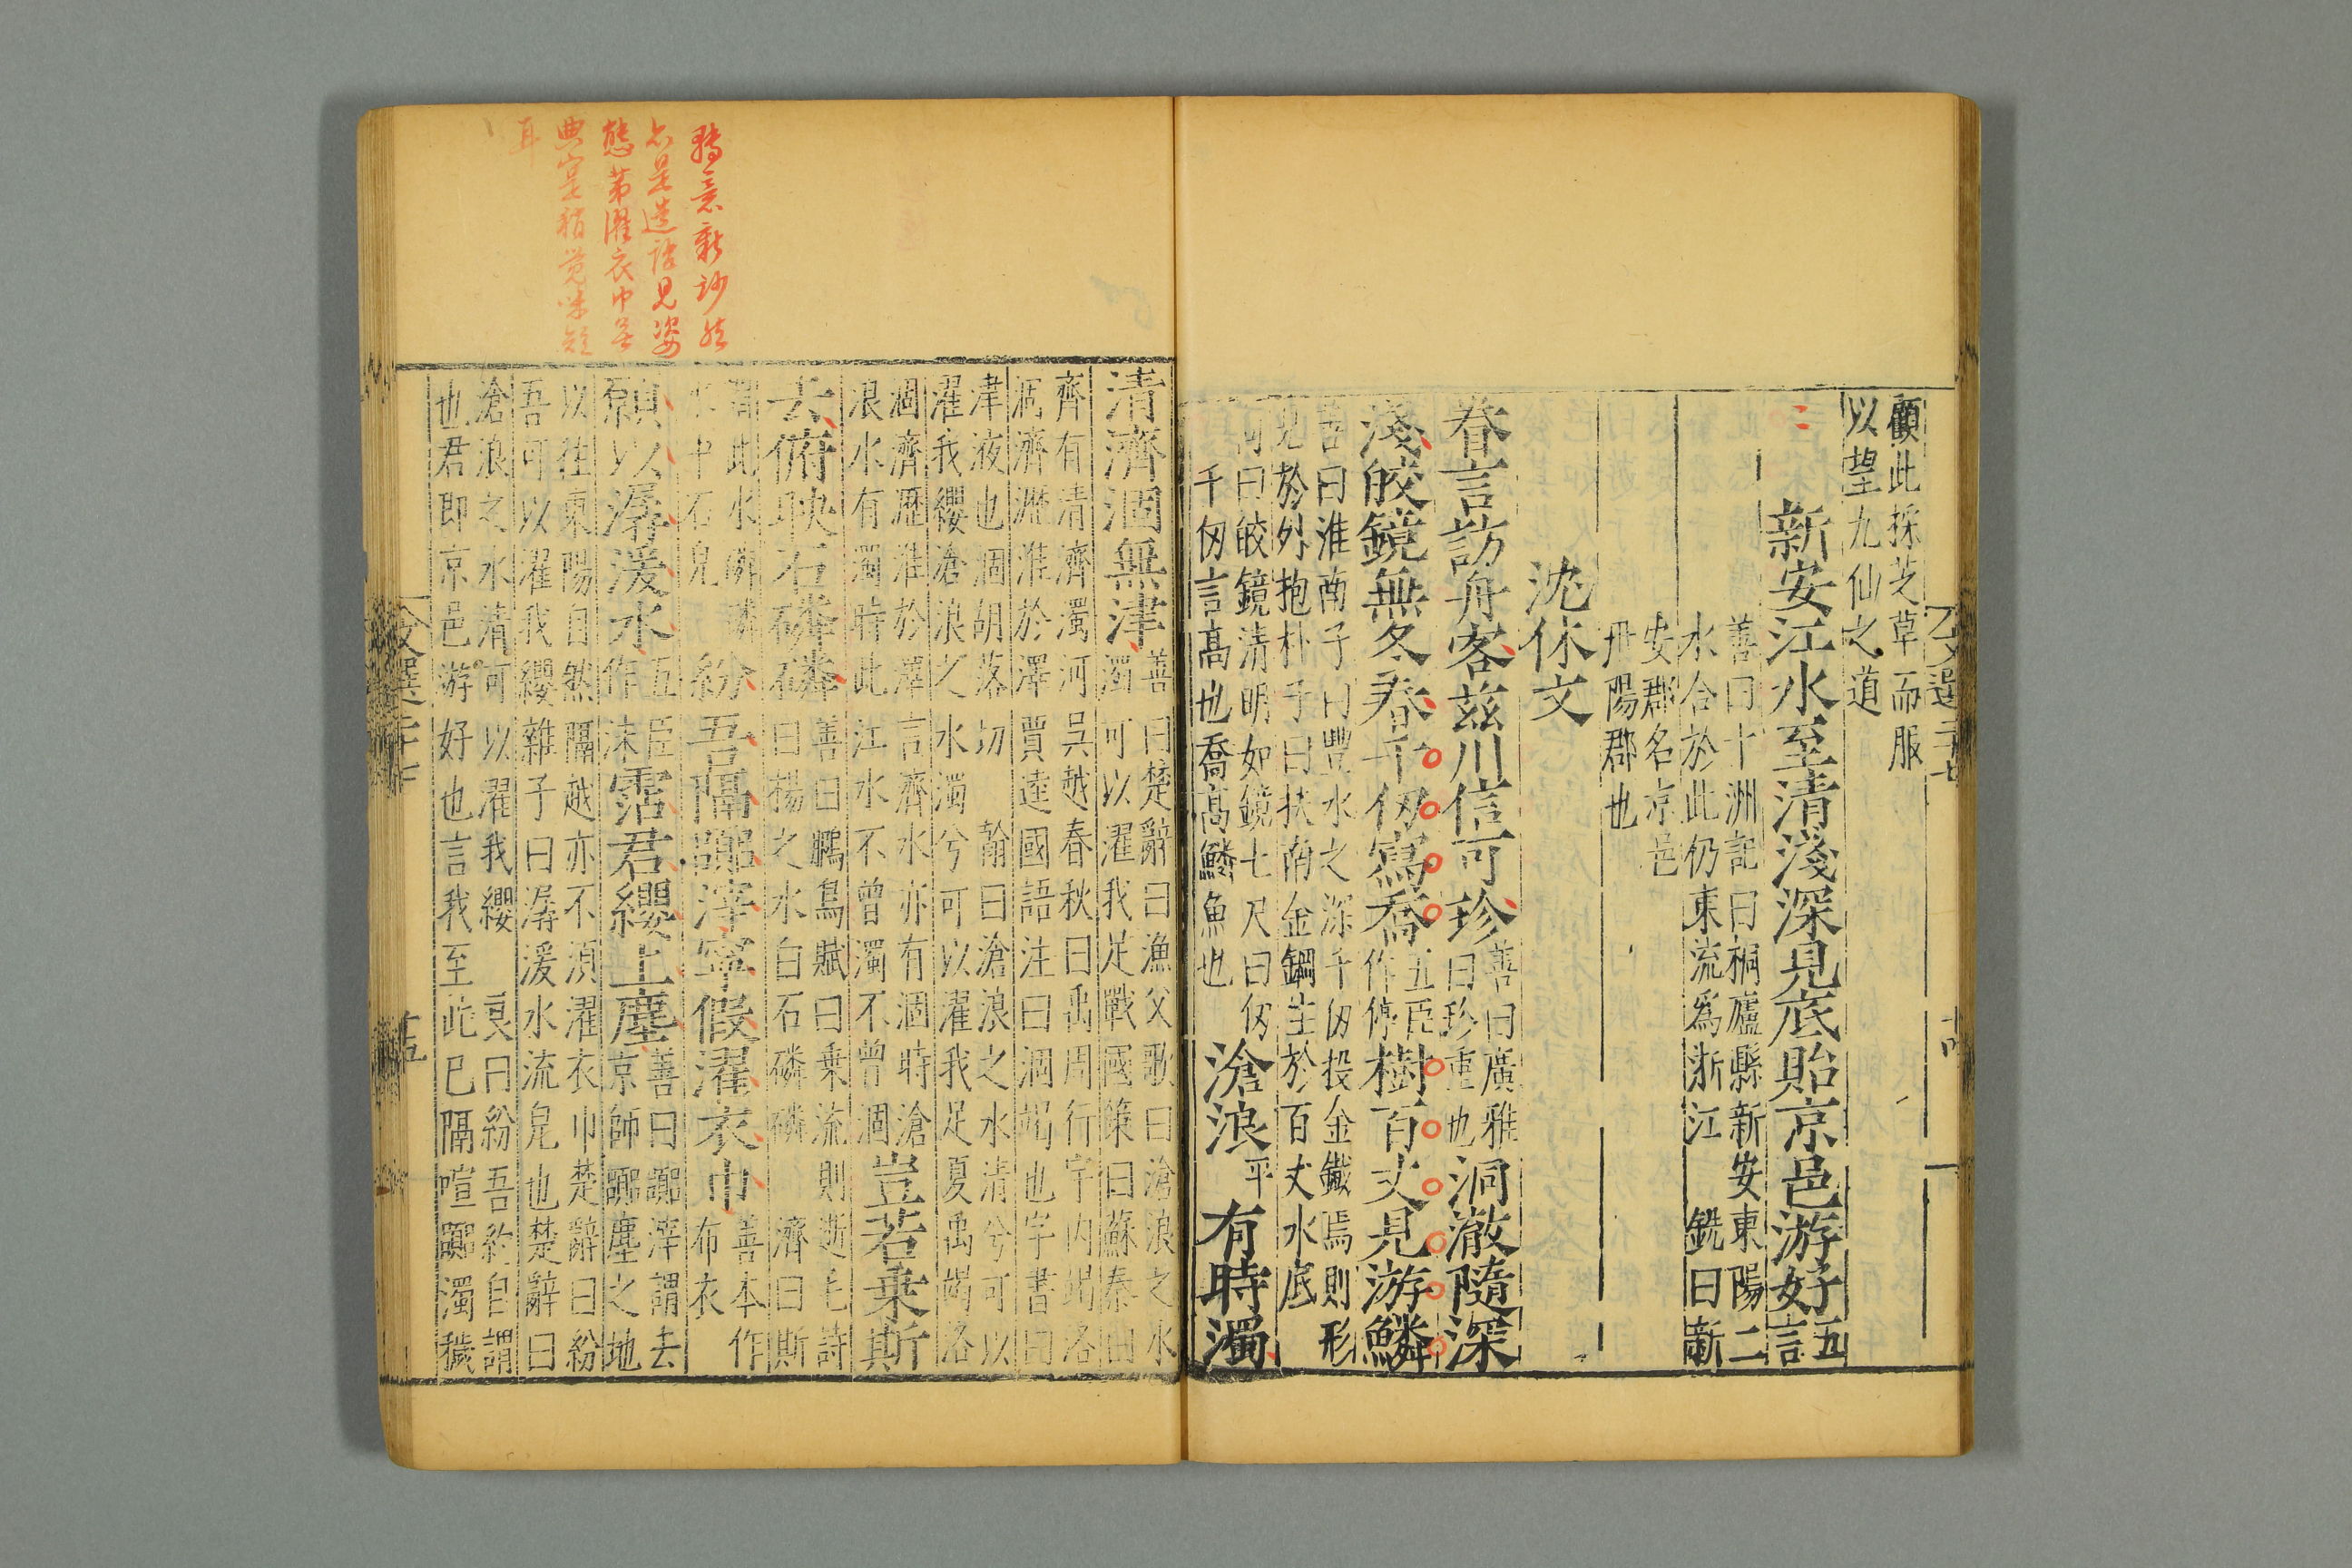 顧此採芝草而服
以望九仙之道
新安江水至清淺深見底貽京邑游好五言
善曰十洲記曰桐廬縣新安東陽二
水合於此仍東流爲浙江 銑曰新
安郡名京邑
丹陽郡也
沈休文
眷言訪舟客茲川信可珍善曰廣雅曰珍重也洞澈隨深
淺皎鏡無冬春千仞寫喬五臣作停樹百丈見游鱗
善曰淮南子曰豐水之深千仞投金鐵焉則形
見於外抱朴子曰扶南金鋼生於百丈水底
向曰皎鏡清明如鏡七尺曰仞
千仞言髙也喬髙鱗魚也
滄浪平有時濁
清濟涸無津善曰楚辭曰漁父歌曰滄浪之水
濁可以濯我足戰國策曰蘇秦曰
齊有清濟濁河吳越春秋曰禹周行宇内竭洛
涸濟瀝淮於澤賈逵國語注曰涸竭也字書曰
津液也涸胡落切 翰曰滄浪之水清兮可以
濯我纓滄浪之水濁兮可以濯我足夏禹竭洛
涸濟瀝淮於澤言濟水亦有涸時滄
浪水有濁時此江水不曾濁不曾涸
豈若乗斯
去俯映石磷磷善曰鵩鳥賦曰乗流則逝毛詩
曰揚之水白石磷磷 濟曰斯
謂此水磷磷
水中石皃
紛吾隔囂滓寧假濯衣巾善本作布衣
願以潺湲水五臣作沫霑君纓上塵善曰囂滓謂去
京師囂塵之地
以往東陽自然隔越亦不湏濯衣巾楚辭曰紛
吾可以濯我纓雜子曰潺湲水流皃也楚辭曰
滄浪之水清可以濯我纓 良曰紛吾約自謂
也君即京邑游好也言我至此已隔喧囂濁穢
文選二十七
十五
態第濯衣巾
耳